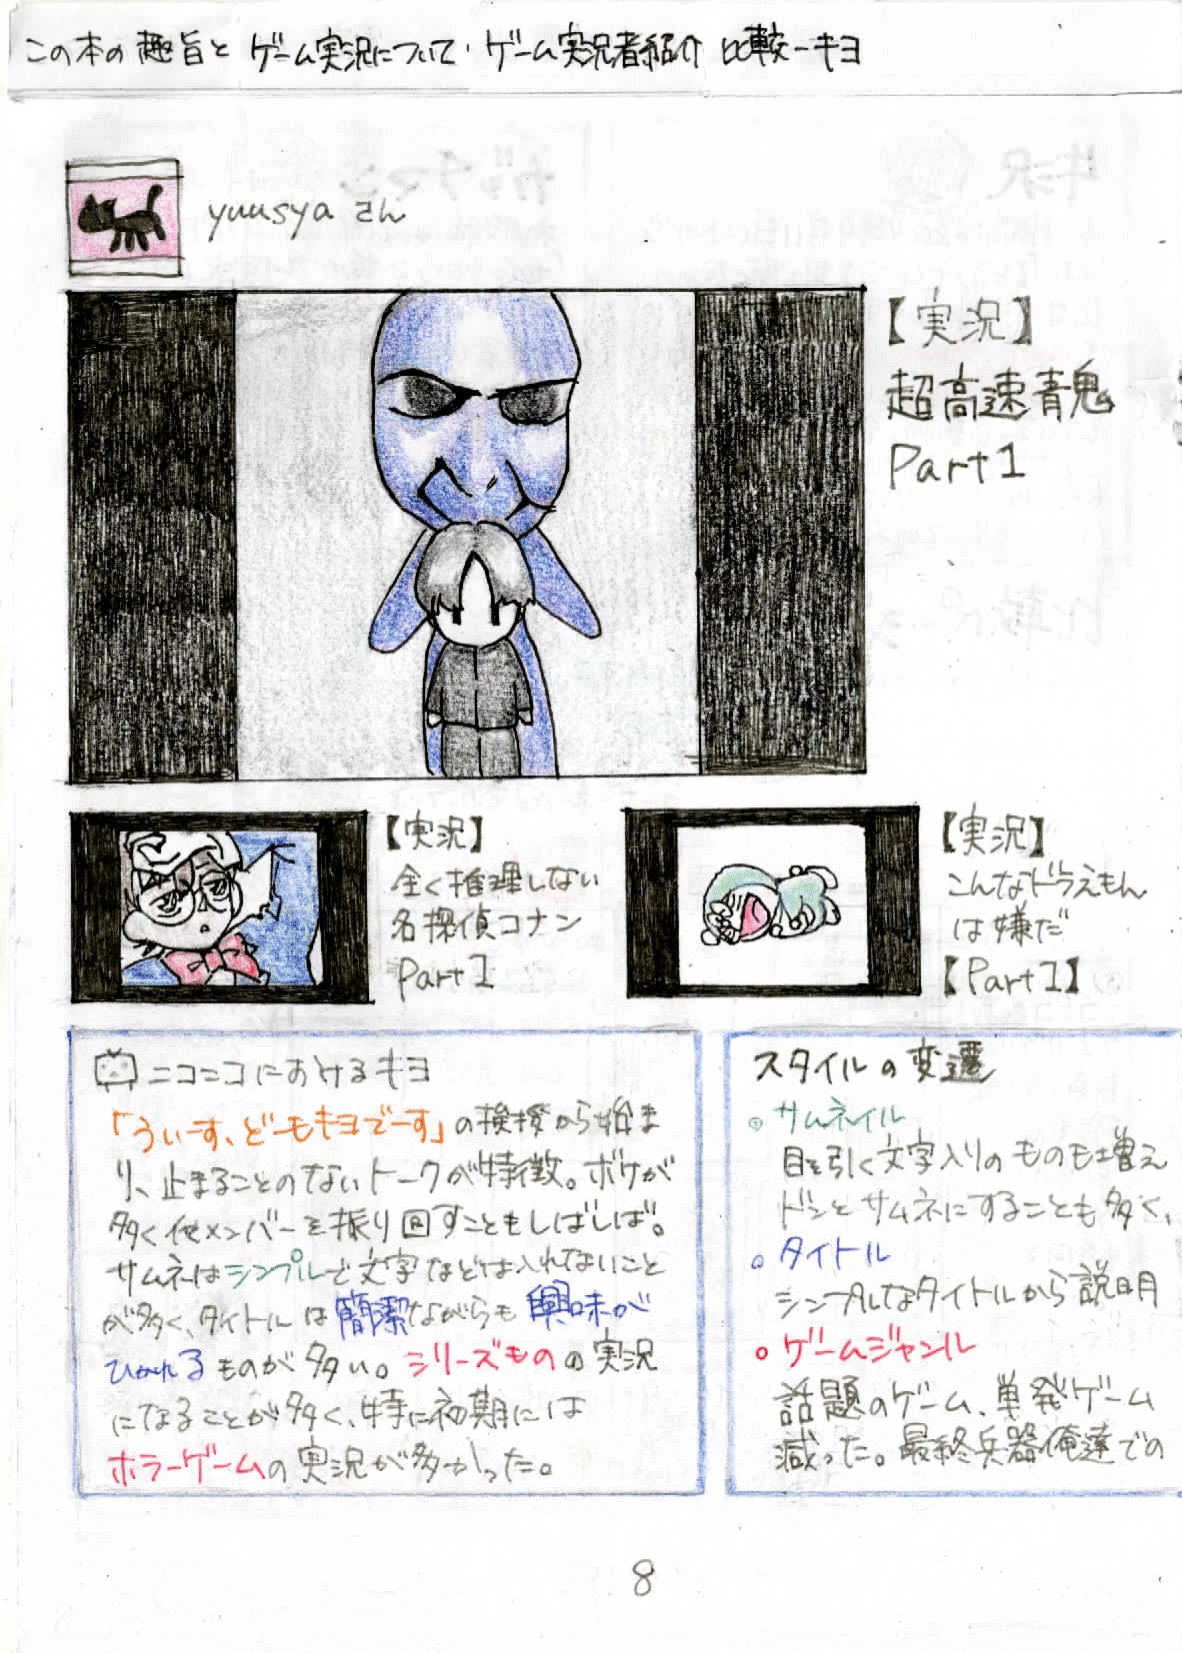 この本の趣旨とゲーム実況について・ゲーム実況者紹介 比較ーキヨ
yuusya さん
【実況】
超高速青鬼
Part1
【実況】
全く推理しない
名探偵コナン
Part1
【実況】
こんなドラえもん
は嫌だ
【Part1】
ニコニコにおけるキヨ
「うぃーす、どーもキヨでーす」の挨拶から始ま
り、止まることのないトークが特徴。ボケが
多く他メンバーを振り回すこともしばしば。
サムネはシンプルで文字などは入れないこと
が多く、タイトルは簡潔ながらも興味が
ひかれるものが多い。シリーズものの実況
になることが多く、特に初期には
ホラーゲームの実況が多かった。
スタイルの変遷
。サムネイル
目を引く文字入りのものも増え
ドンとサムネにすることも多く、
。タイトル
シンプルなタイトルから説明
。ゲームジャンル
話題のゲーム、単発ゲーム
減った。最終兵器俺達での
8